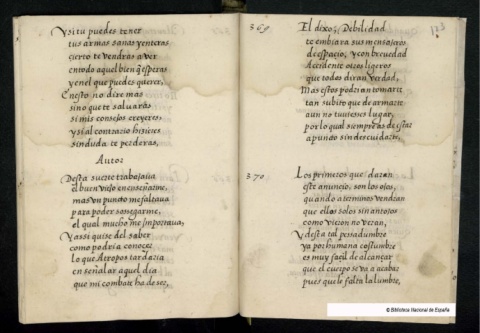 Y si tu puedes tener
tus armas sanas y enteras
cierto te vendras a ver
en todo aquel bien q̃ esperas
y en el que puedes querer,
En esto no dire mas
sino que te salvaras
si mis consejos creyeres
y si al contrario hizieres
sin duda te perderas,
Autor
Desta suerte trabajava
el buen viejo en enseñarme,
mas un punto me faltava
para poder sosegarme,
el qual mucho me importava,
Y assi quise del saber
como podria conocer
lo que Atropos tardaria
en señalar aquel dia
que mi combate ha de ser,
369
El dixo, Debilidad
te embiara sus mensajeros
de espacio, y con brevedad
Accidente otros ligeros
que todos diran verdad,
Mas estos podrian tomarte
tan subito que de armarte
aun no tuvieses lugar,
por lo qual siempre as de estar
a punto sin descuidarte.
370
Los primeros que daran
este anuncio, son los ojos,
quando a terminos vendran
que ellos solos sin antojos
como vieron no veran,
Y desta tal pesadumbre
ya por humana costumbre
es muy facil de alcançar
que el cuerpo se va a acabar
pues que le falta la lumbre,
© Biblioteca Nacional de España